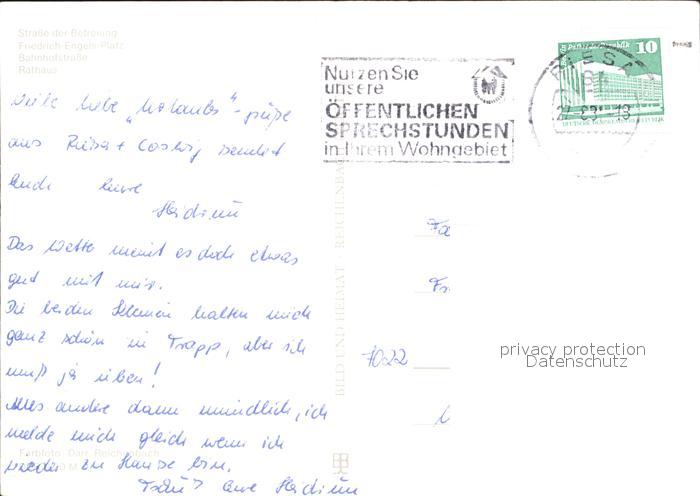 Straße der Befreiung
Friedrich-Engels-Platz
Bahnhofstraße
Rathaus
Viele liebe „Urlaubs"-grüße
aus Riesa + Coswig sendet
Euch Eure
Das Wetter meint es doch etwas
gut mit mir.
Die beiden Kleinen halten mich
ganz schön in Trapp, aber ich
muß ja üben!
Alles andere dann mündlich, ich
melde mich gleich wenn ich
wieder zu Hause bin.
Eure
Farbfoto: Darr, Reichenbach
BILD UND HEIMAT · REICHENBACH
Nutzen Sie
unsere
ÖFFENTLICHEN
SPRECHSTUNDEN
in Ihrem Wohngebiet
RIESA
Palast der Republik 10
DEUTSCHE DEMOKRATISCHE REPUBLIK
Fa
7022
privacy protection
Datenschutz